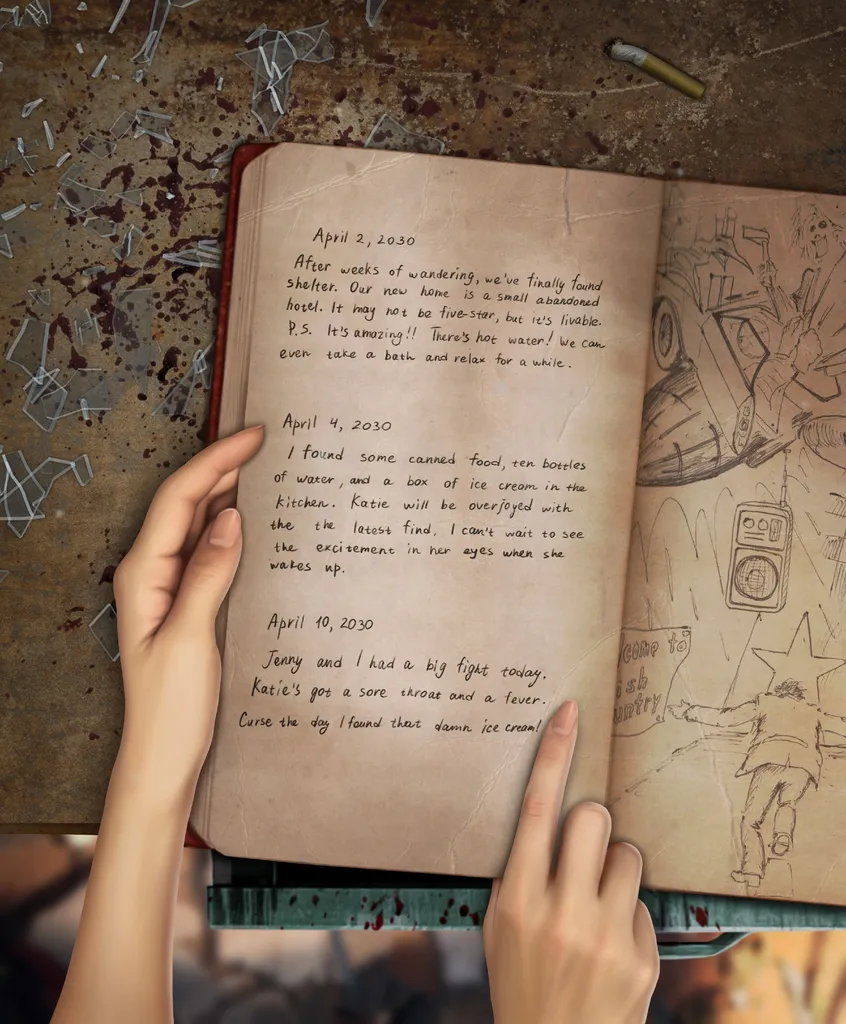 April 2, 2030
After weeks of wandering, we've finally found
shelter. Our new home is a small abandoned
hotel. It may not be five-star, but it's livable.
P.S. It's amazing!! There's hot water! We can
even take a bath and relax for a while.
April 4, 2030
I found some canned food, ten bottles
of water, and a box of ice cream in the
kitchen. Katie will be overjoyed with
the the latest find. I can't wait to see
the excitement in her eyes when she
wakes up.
April 10, 2030
Jenny and I had a big fight today.
Katie's got a sore throat and a fever.
Curse the day I found that damn ice cream!
come to
ish
untry